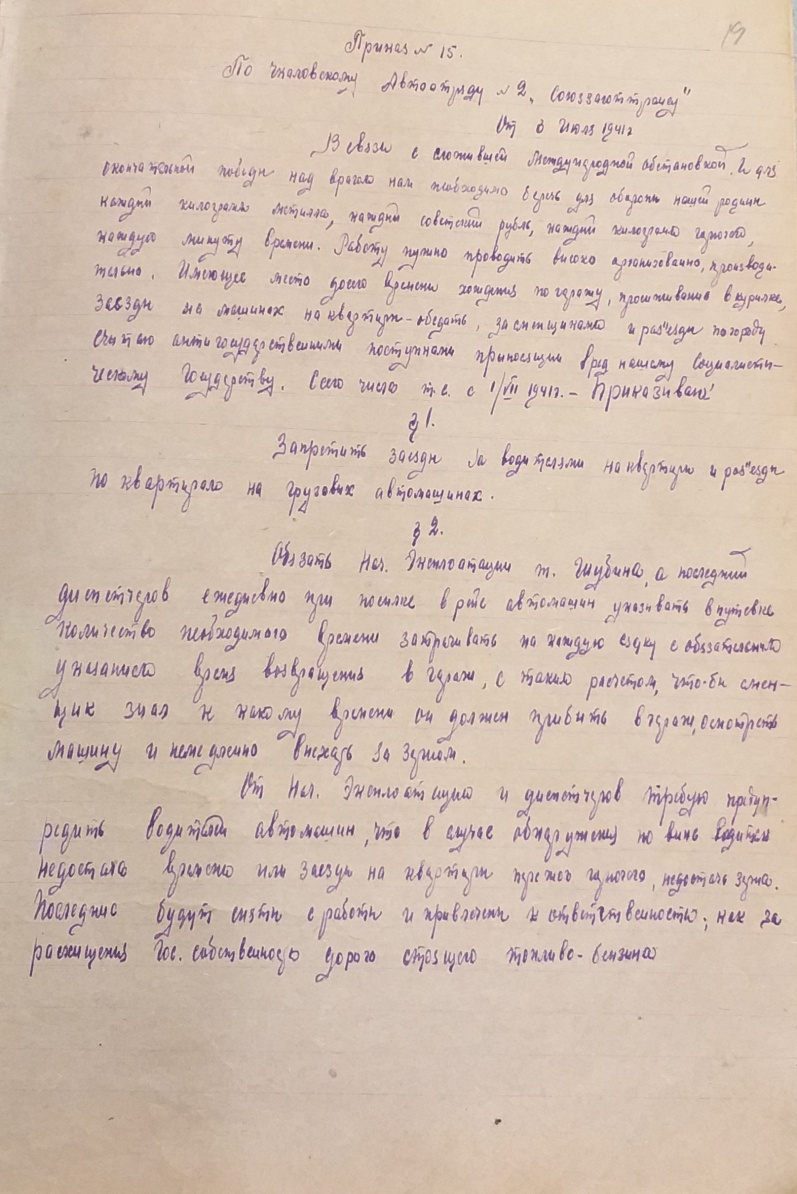 19
Приказ № 15.
По Чкаловскому Автоотряду № 2 „Союззаготтранса"
От 8 Июля 1941 г
В связи с сложившей Международной обстановкой. И для
окончательной победы над врагом нам необходимо беречь для обороны нашей родины
каждый килограмм металла, каждый советский рубль, каждый килограмм горючего,
каждую минуту времени. Работу нужно проводить високо организованно, производи-
тельно. Имеющее место досего времени хождения по гаражу, просиживание в курилке,
заезды на машинах на квартиры-обедать, за сменщиками и раз"езды по городу
считаю антигосударственными поступками приносящии вред нашему Социалисти-
ческому Государству. Сего числа т.е. с 1/VII 1941г. – Приказиваю!
§ 1.
Запретить заезды за водителями на квартиры и раз"езды
по квартирам на грузових автомашинах.
§ 2.
Обязать Нач. Эксплоатации т. Шубина, а последний
диспетчеров ежедневно при посылке в рейс автомашин указивать в путевке
количество необходимого времени затрачивать на каждую ездку с обязательным
указанием время возвращения в гараж, с таким расчетом, что-би смен-
щик знал к какому времени он должен прибить в гараж, осмотреть
машину и немедленно виехать за зерном.
От Нач. Эксплоатации и диспетчеров требую предуп-
редить водителей автомашин, что в случае обнаружения по вине водителя
недостача времени или заезды на квартиры пережог горючего, недостача зерна.
Последние будут сняты с работы и привлечены к ответственности, как за
расхищения Гос. собственность дорого стоящего топливо-бензина